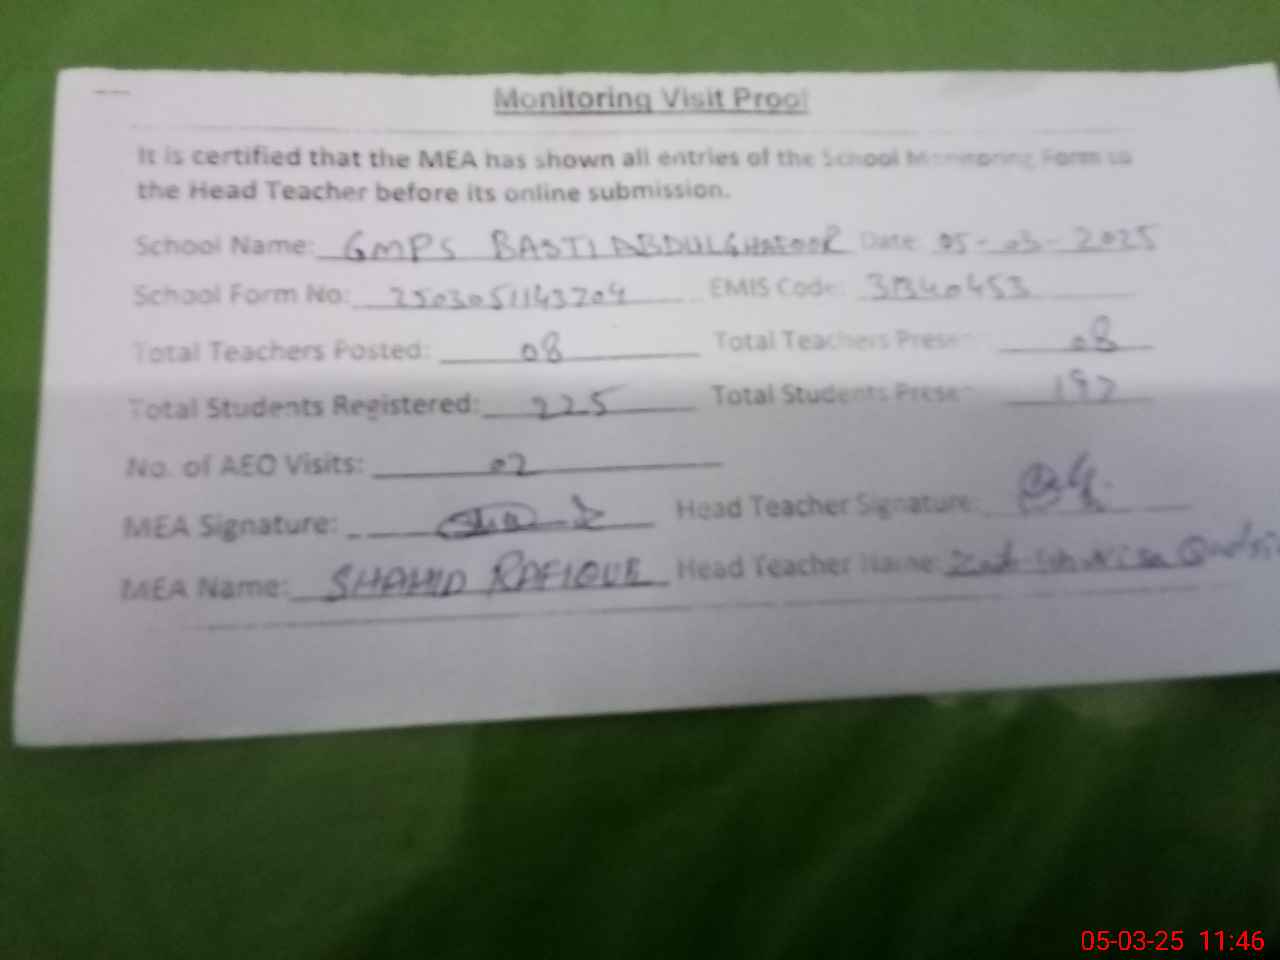 Monitoring Visit Proof
It is certified that the MEA has shown all entries of the School Monitoring Form to
the Head Teacher before its online submission.
School Name: GMPS BASTI ABDULGHAFOOR Date: 05-03-2025
School Form No: 2503051143204 EMIS Code:
Total Teachers Posted: 08 Total Teachers Present 08
Total Students Registered: 225 Total Students Present
No. of AEO Visits: 02
MEA Signature: Head Teacher Signature:
MEA Name: SHAHID RAFIQUE Head Teacher Name:
05-03-25 11:46